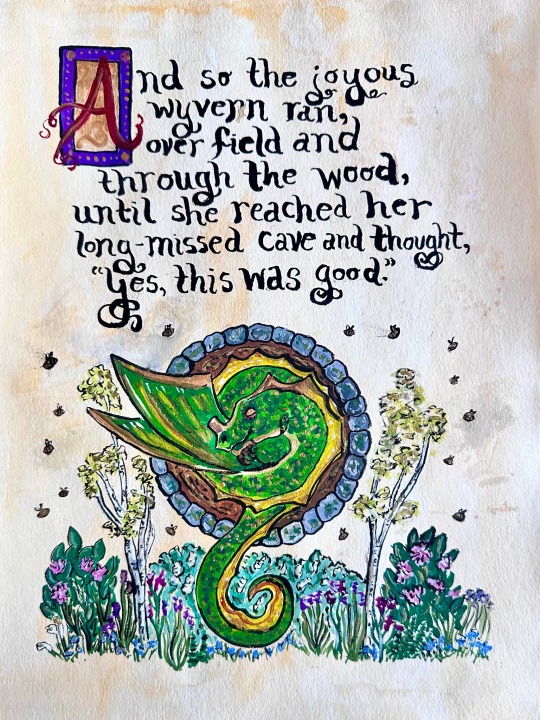 And so the joyous
wyvern ran,
over field and
through the wood,
until she reached her
long-missed cave and thought,
"Yes, this was good."